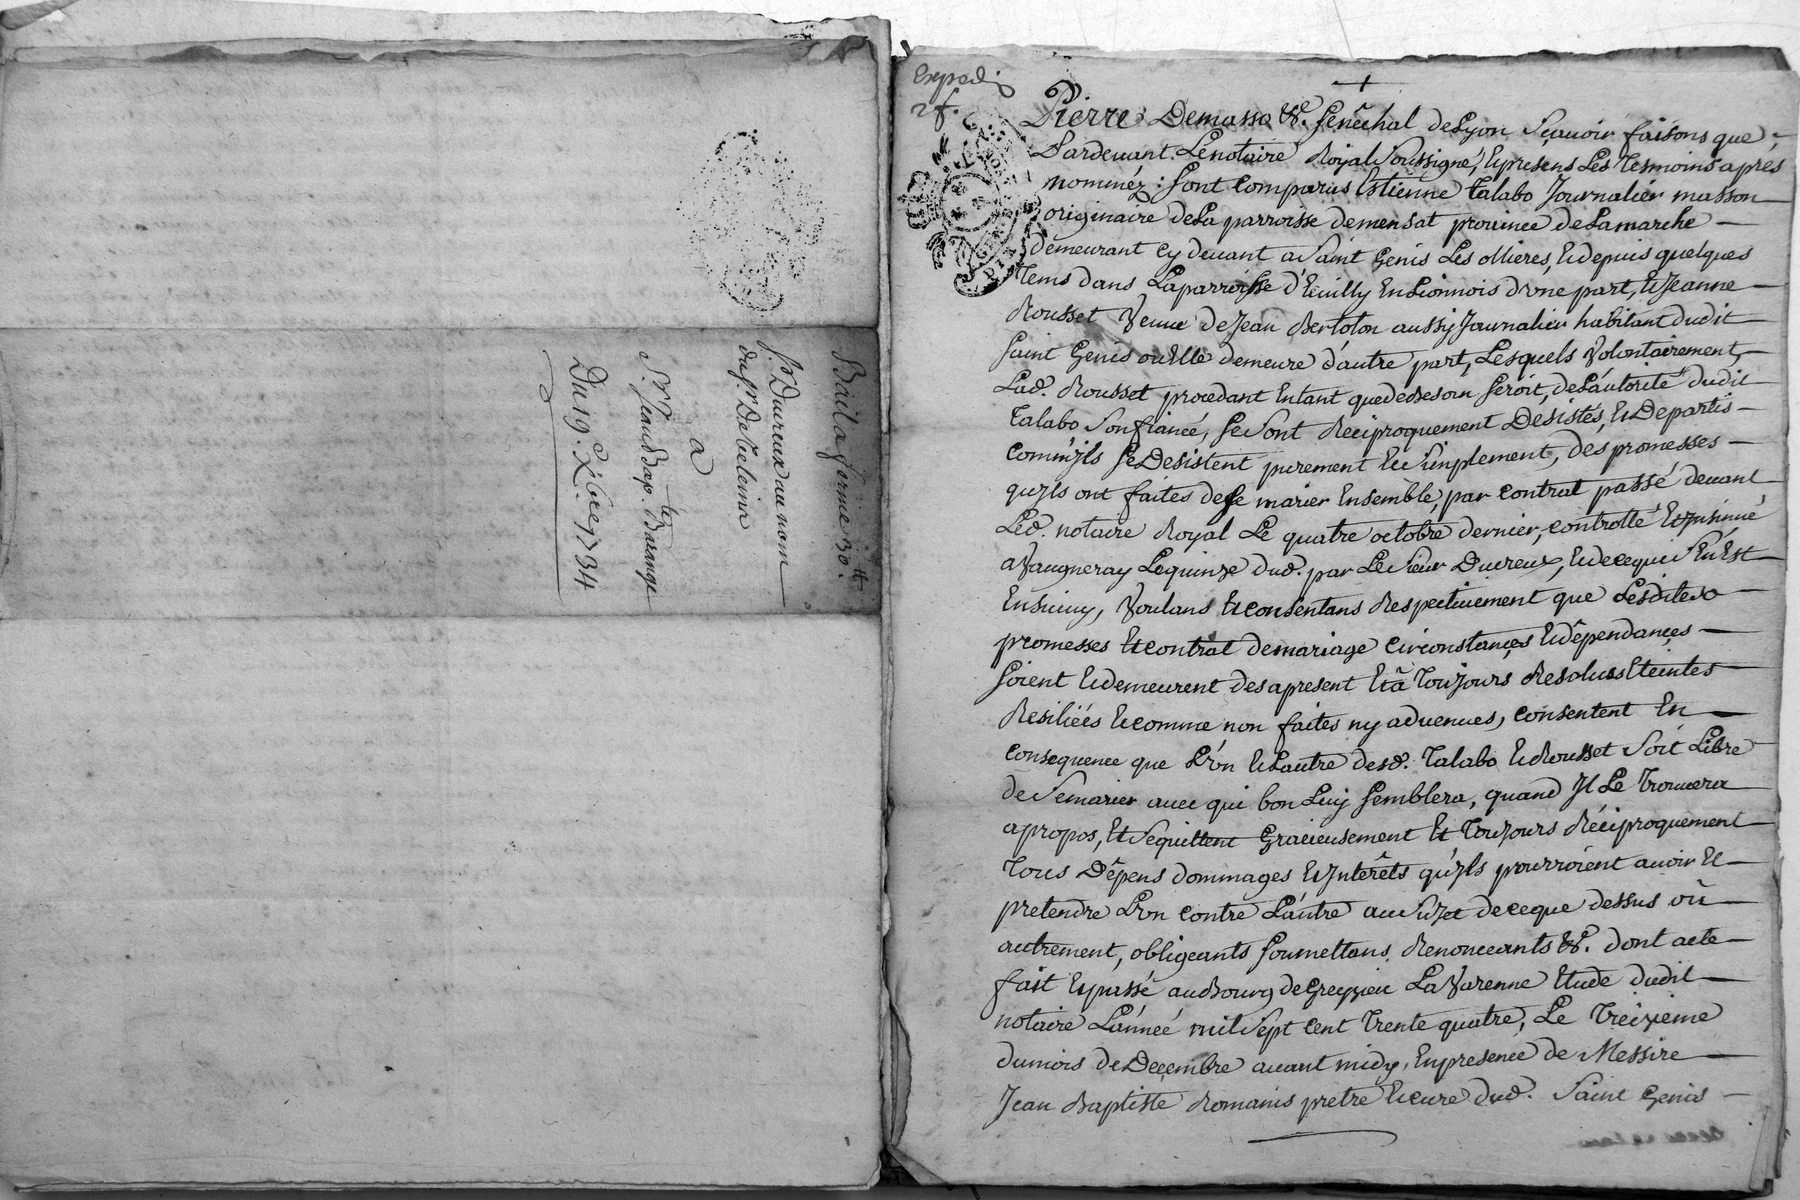 Bail a ferme 30.tt
Sr. Ducreux au nom
du sr. Delieleinne
a
Sr. Jean Bap.te Barange
Du 19.e Xbre 1734
Exped.
2 f.
Pierre Demasso &c. Senêchal de Lyon Sçavoir faisons que,
Pardevant Le notaire Royal Soussigné, Et presens Les Tesmoins apres
nomméz: Sont comparus Estienne talabo Journalier masson
originaire de La parroisse de mensat province de La marche
demeurant cy devant a Saint Genis Les ollieres, Et depuis quelques
Tems dans La parroisse d'Eüilly En Lionnois d'vne part, Et Jeanne
Rousset Veuve de Jean Bertolon aussy Journalier habitant dudit
Saint Genis ou Elle demeure d'autre part, Lesquels Volontairement,
Lad. Rousset procedant Entant que de besoin Seroit, de L'autorité dudit
Talabo Son fiancé, Se Sont Réciproquement Desistés, Et Departis
comm'jls Se Desistent purement Et Simplement, des promesses
qu'jls ont faites de Se marier Ensemble, par contrat passé devant
Led. notaire Royal Le quatre octobre dernier, controllé Et jnsinué
a Vaugneray Le quinze dud. par Le Sieur Ducreux, Et de ce qui S'En Est
Ensuivy, Voulans Et consentans Respectivement que Lesdites
promesses Et contrat de mariage circonstances Et dêpendances
Soient Et demeurent des apresent Et â Toujours Resolues Eteintes
Resiliées Et comme non faites ny advenues, consentent En
consequence que L'vn Et L'autre desd. Talabo Et Rousset Soit Libre
de Se marier avec qui bon Luy Semblera, quand Jl Le Trouvera
apropos, Et Se quittent Gracieusement Et Toujours Réciproquement
Tous Dêpens dommages Et Jnterêts qu'jls pourroient avoir Et
pretendre L'vn contre L'autre au Sujet de ce que dessus où
autrement, obligeants Soumettans Renonceants &c. dont acte
fait Et passé au Bourg de Grezieu La Varenne Etude dudit
notaire L'année mil Sept cent Trente quatre, Le Treizieme
du mois de Decembre avant midy, En presence de Messire
Jean Baptiste Romanis pretre Et curé dud. Saint Genis